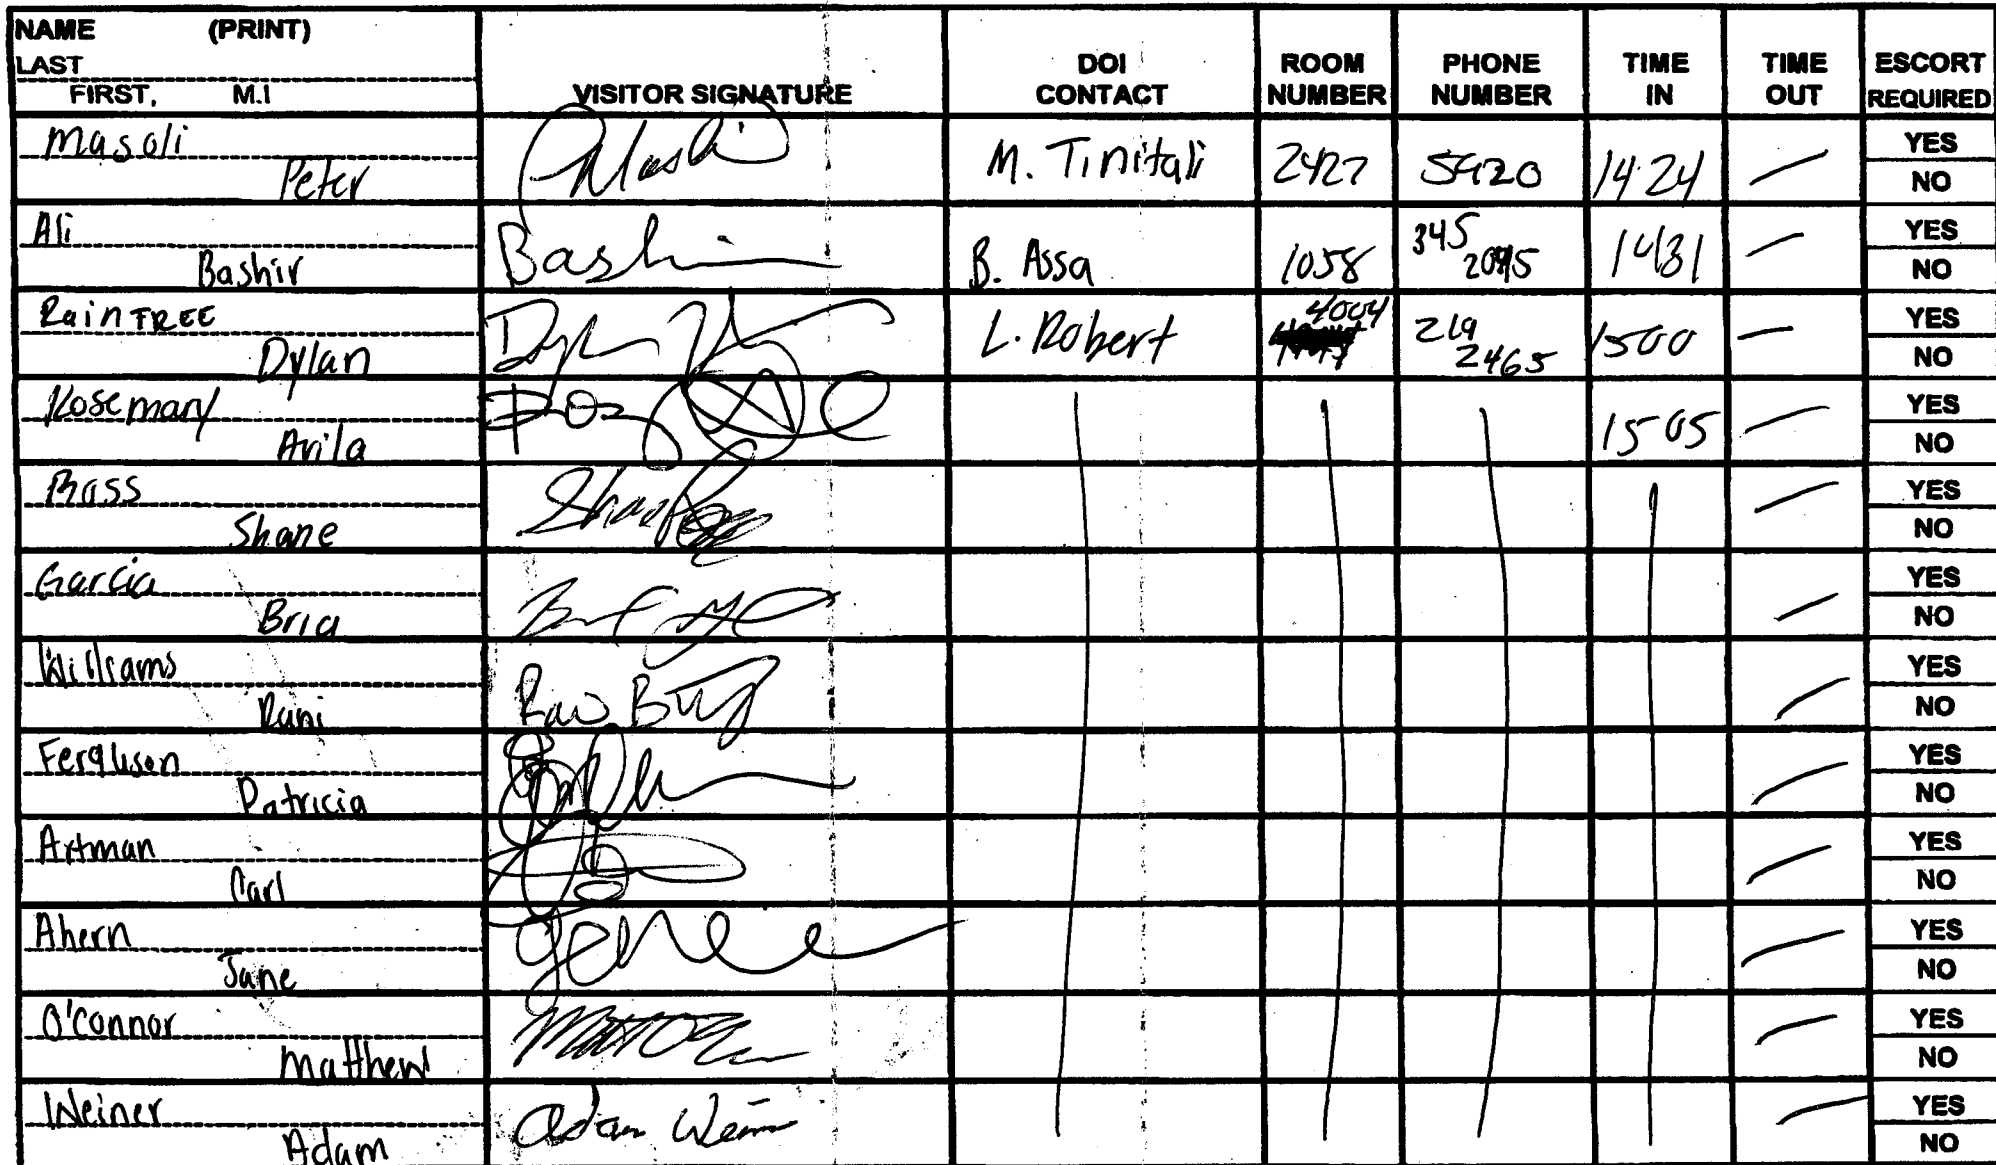 NAME (PRINT)
LAST
FIRST, M.I
VISITOR SIGNATURE
DOI CONTACT
ROOM NUMBER
PHONE NUMBER
TIME IN
TIME OUT
ESCORT REQUIRED
Masoli
Peter
M. Tinitali 2427 5920 1424 — YES
NO
Ali
Bashir
Bashir
B. Assa 1058 345 2045 1431 — YES
NO
RainTREE
Dylan
L. Robert 4004 219 2465 1500 — YES
NO
Rosemary
Avila
1505 — YES
NO
Bass
Shane
— YES
NO
Garcia
Bria
— YES
NO
Williams
Rani
— YES
NO
Ferguson
Patricia
— YES
NO
Artman
Carl
— YES
NO
Ahern
Jane
— YES
NO
O'Connor
Matthew
— YES
NO
Weiner
Adam
Adam Weiner
— YES
NO